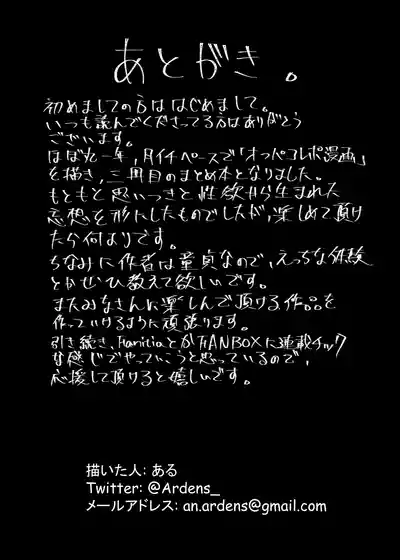 あとがき。
初めましての方ははじめまして。
いつも読んでくださってる方はありがとう
ございます。
ほぼ丸一年,月イチペースで「オッパコレポ漫画」
を描き、三冊目のまとめ本となりました。
もともと思いつきと性欲から生まれた
妄想を形にしたものでしたが,楽しめて頂け
たら何よりです。
ちなみに作者は童貞なので,えっちな体験
とかぜひ教えて欲しいです。
またみなさんに楽しんで頂ける作品を
作っていけるように頑張ります。
引き続き、FantiaとかFANBOXに連載チック
な感じでやっていこうと思っているので,
応援して頂けると嬉しいです。
描いた人: ある
Twitter: @Ardens_
メールアドレス: an.ardens@gmail.com